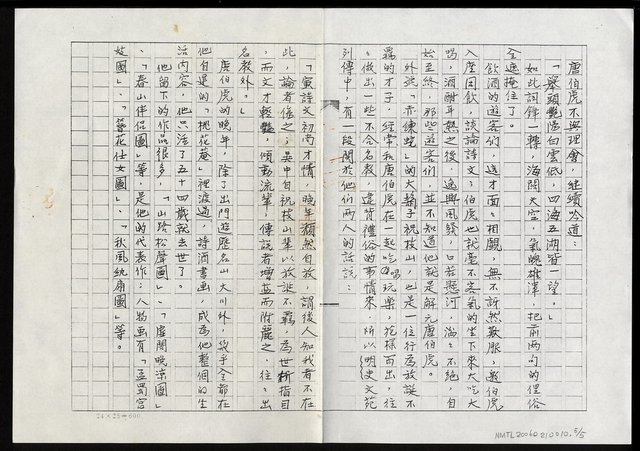 唐伯虎不與理會，繼續吟道：
「舉頭艷陽白雲低，四海五湖皆一望。」
如此詞鋒一轉，海闊天空，氣魄雄渾，把前兩句的俚俗
全遮掩住了。
飲酒的遊客們，這才面面相覷，無不訝然敬服，邀伯虎
入座同飲，談論詩文；伯虎也就毫不客氣的坐下來大吃大
喝，酒酣耳熱之後，逸興風發，口若懸河，滔滔不絕，自
始至終，那些遊客們，並不知道他就是解元唐伯虎。
外號「赤練蛇」的大鬍子祝枝山，也是一位行為放誕不
羈的才子，經常和唐伯虎在一起吃喝玩樂，花樣百出，往往
做出一些不合名教，違背禮俗的事情來，所以明史文苑
列傳中，有一段關於他們兩人的話說：
「寅詩文初尚才情，晚年頹然自放，謂後人知我者不在
此，論者傷之；吳中自祝枝山輩以放誕不羈，為世所指目
，而文才輕艷，傾動流輩，傳說者增益而附麗之，往往出
名教外。」
唐伯虎的晚年，除了出門遊歷名山大川外，幾乎全部在
他自建的「桃花菴」裡渡過，詩酒書画，成為他整個的生
活內容。他只活了五十四歲就去世了。
他留下的作品很多，「山路松聲圖」、「虛閣晚涼圖」
、「春山伴侶圖」等，是他的代表作；人物画有「孟蜀宮
妓圖」、「簪花仕女圖」、「秋風紈扇圖」等。
24×25=600
NMTL20060210010. 5/5